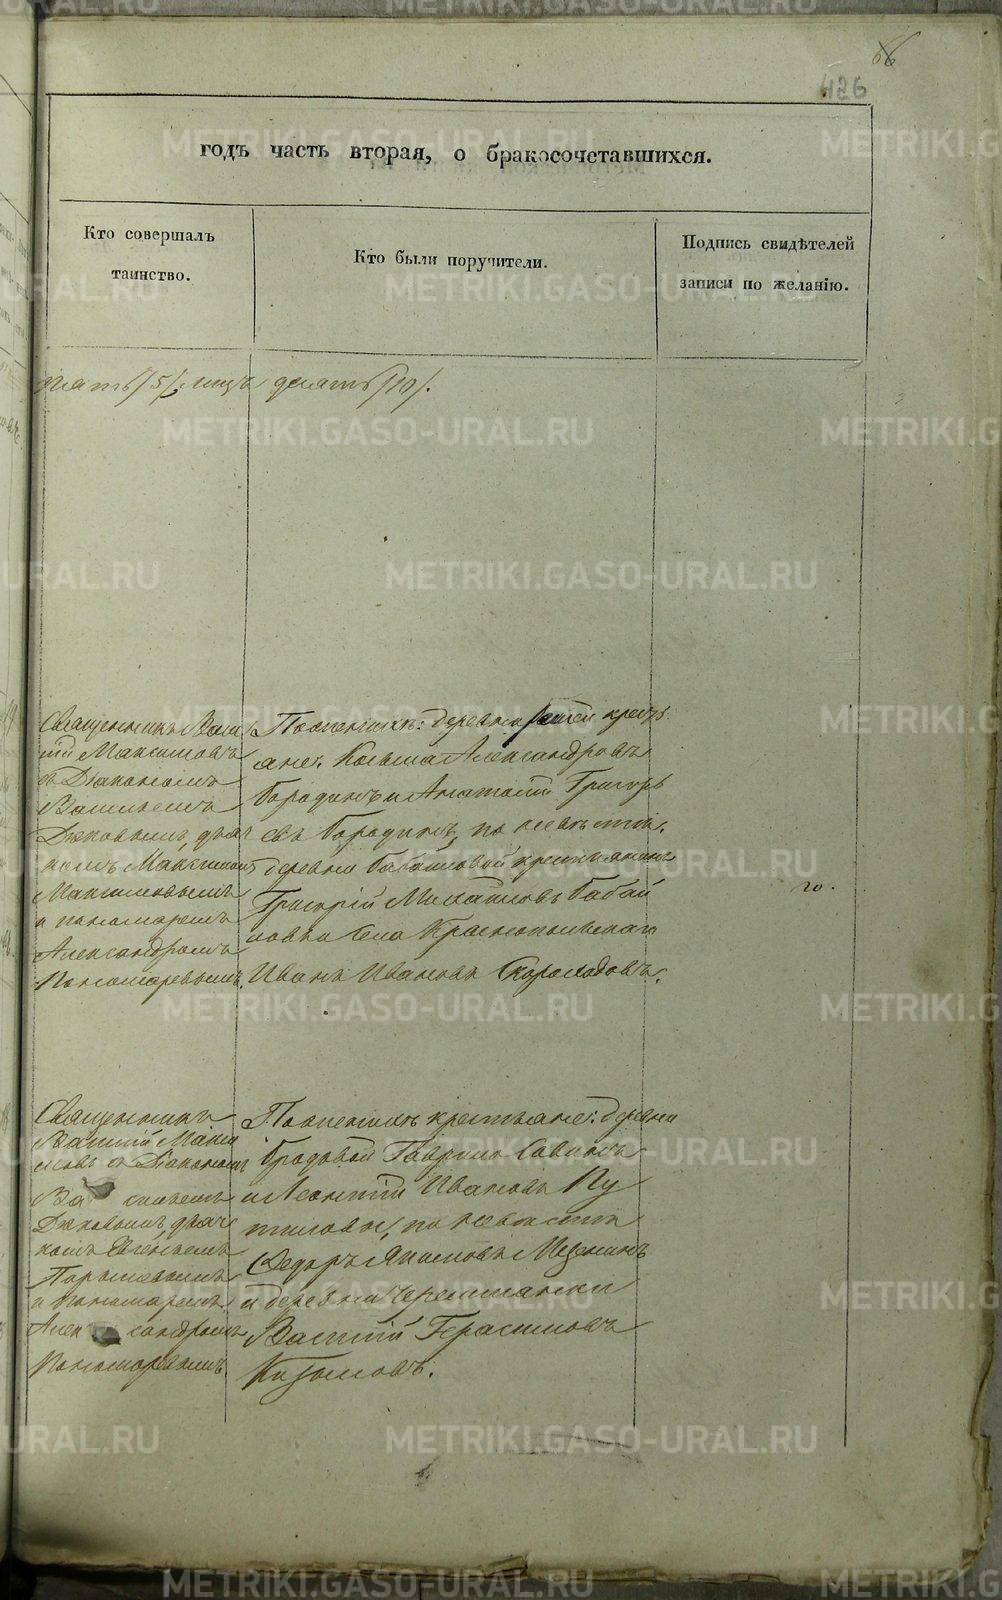 66
426
годъ часть вторая, о бракосочетавшихся.
Кто совершалъ
таинство.
Кто были поручители.
Подпись свидѣтелей
записи по желанію.
/5/ лицъ десять /10/.
Священникъ Васи
лій Максимовъ
съ Діакономъ
Васильемъ
Дюковымъ, дьяч
комъ Максимом
Максимовымъ
и пономаремъ
Александромъ
Пономаревымъ.
По женихѣ: деревни крестья
ане: Козьма Александровъ
Бородинъ и Анатолій Григорь
евъ Бородинъ, по невѣстѣ:
деревни Бабайловой крестьянинъ
Григорій Михайловъ Бабай
ловъ и села Краснопольскаго
Иванъ Ивановъ Скороходовъ.
Священникъ
Василій Макси
мовъ съ Діакономъ
Васильемъ
Дюковымъ, дьяч
комъ Евгеньемъ
и пономаремъ
Александромъ
Пономаревымъ.
По женихѣ крестьяне: деревни
Бродовой Гаврило Савинъ
и Леонтій Ивановъ Пу
тиловы, по невѣстѣ
Ѳедоръ Якимовъ Мезенинъ
и деревни Черемшанки
Василій Герасимовъ
METRIKI.GASO-URAL.RU